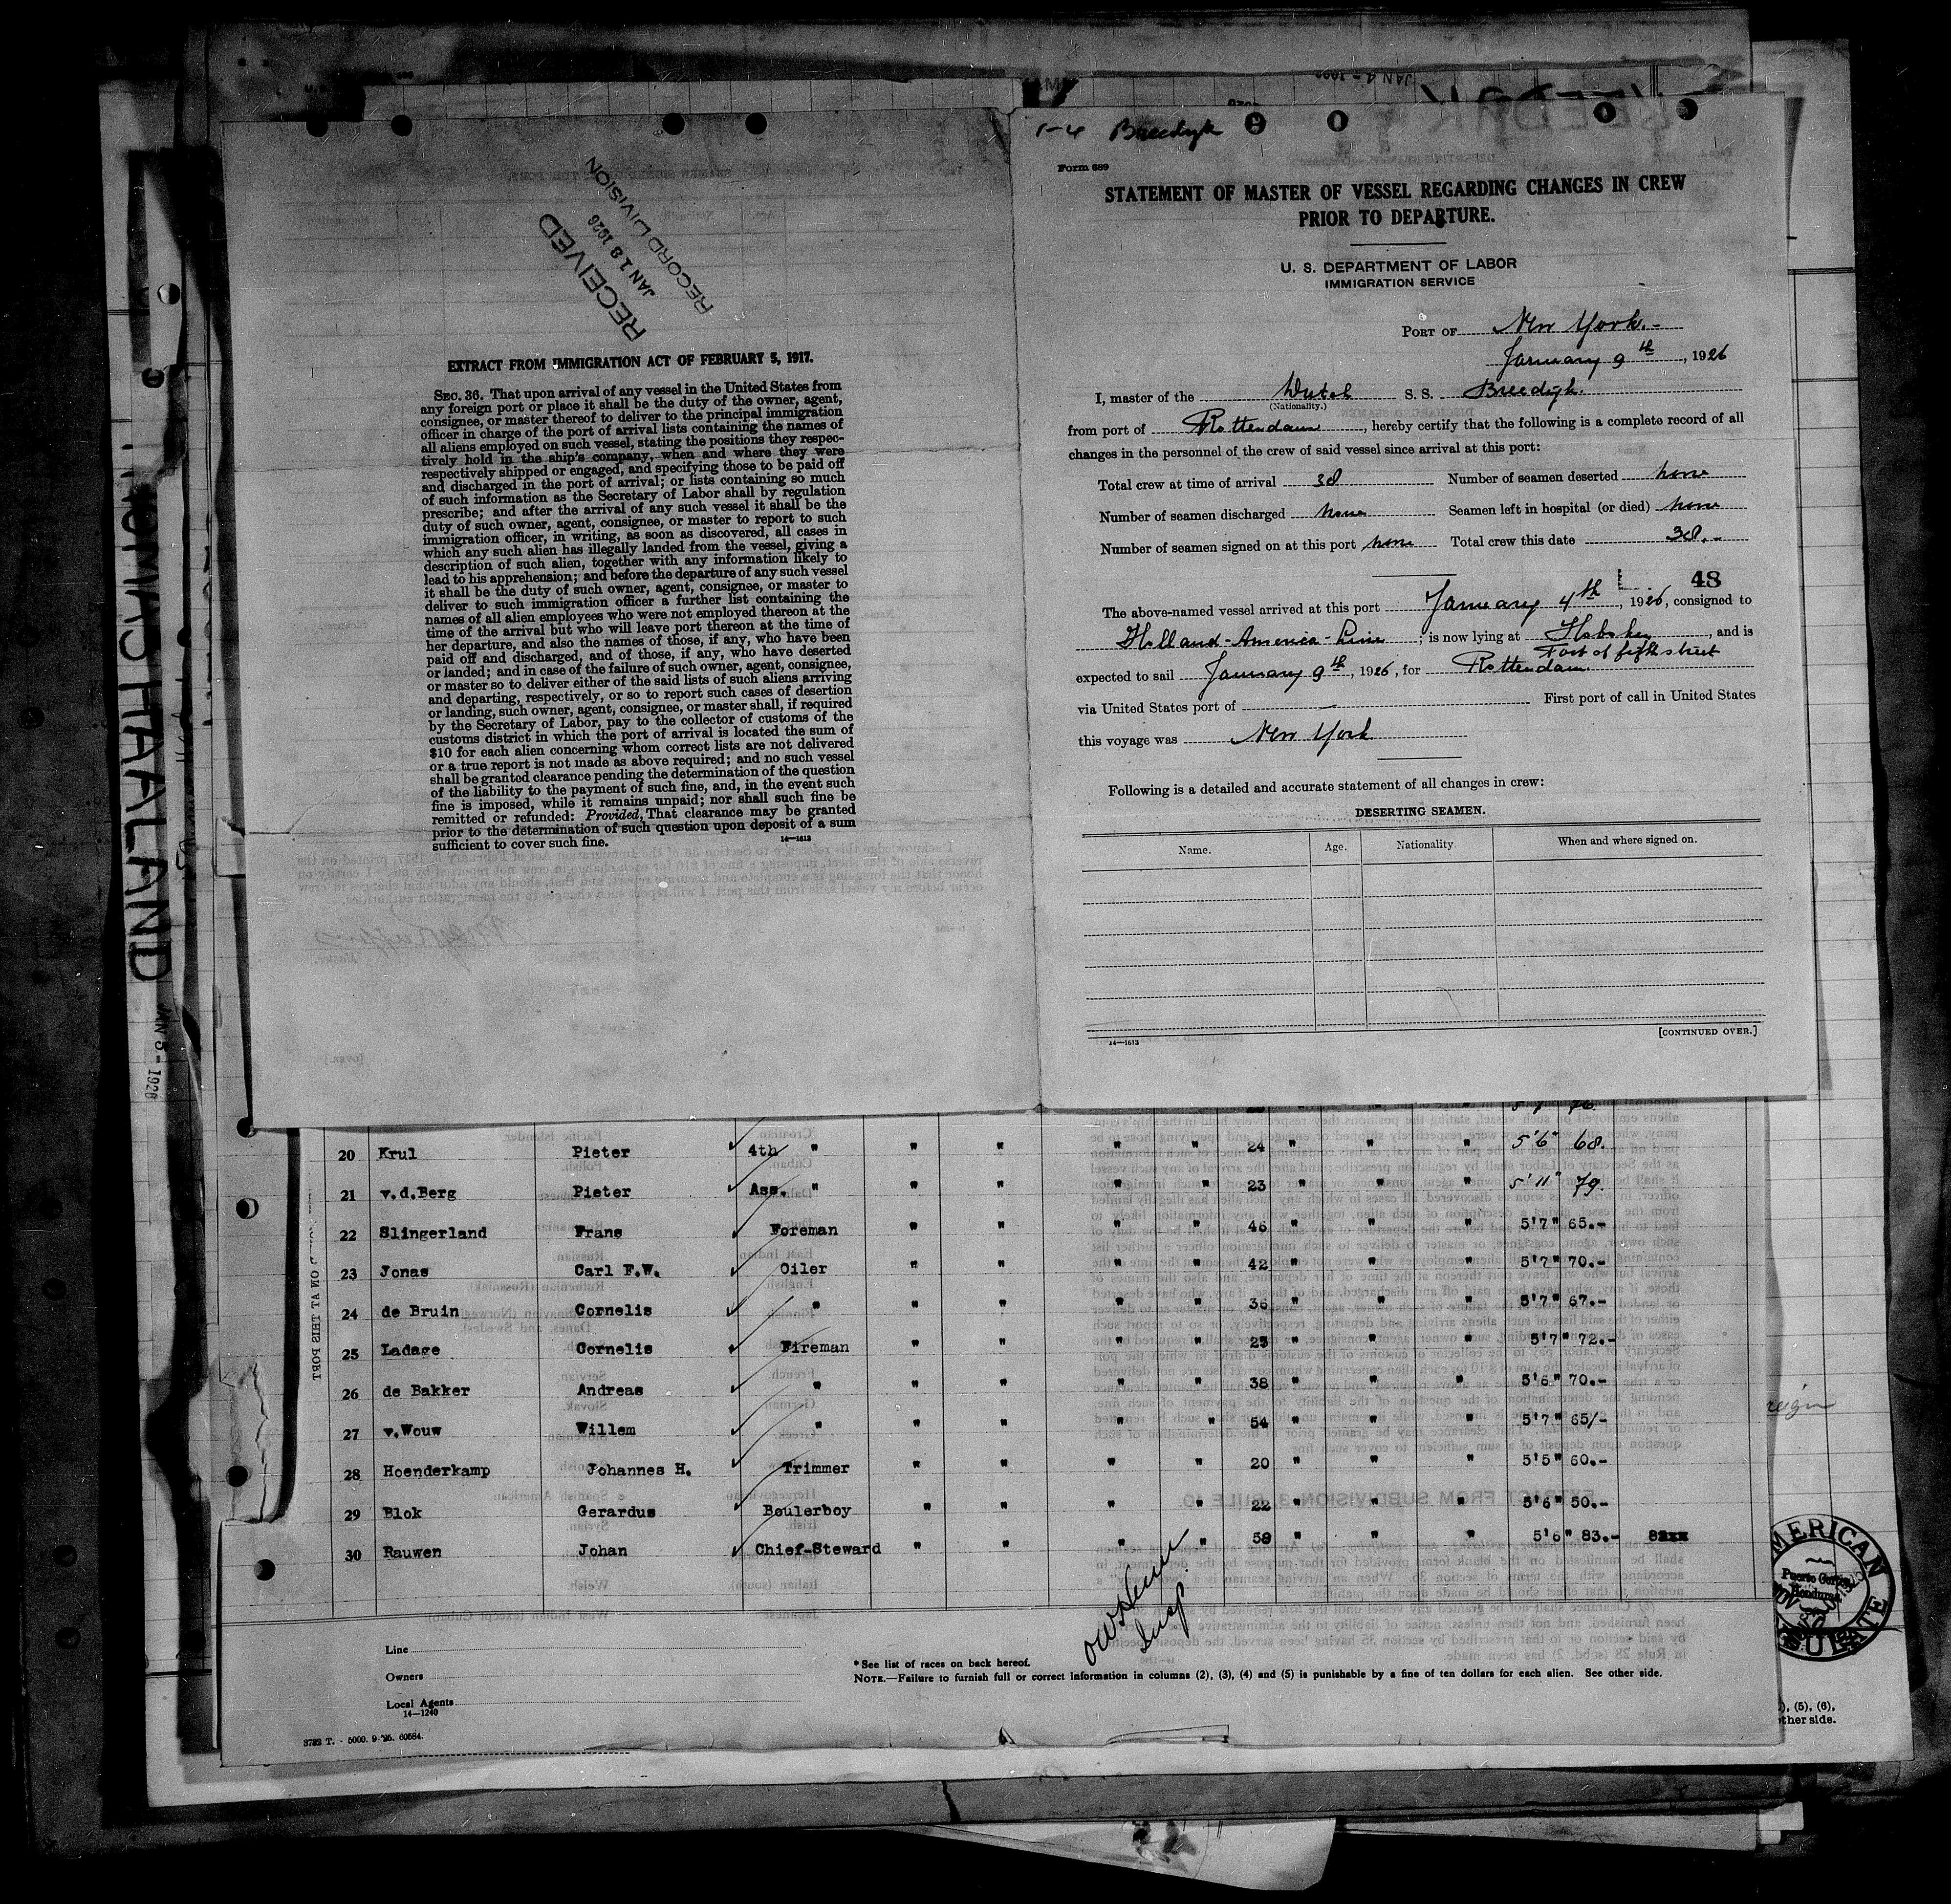 THOMAS HAALAND
JAN 5 - 1926
RECEIVED
JAN 18 1926
RECORD DIVISION
EXTRACT FROM IMMIGRATION ACT OF FEBRUARY 5, 1917.
SEC. 36. That upon arrival of any vessel in the United States from
any foreign port or place it shall be the duty of the owner, agent,
consignee, or master thereof to deliver to the principal immigration
officer in charge of the port of arrival lists containing the names of
all aliens employed on such vessel, stating the positions they respec-
tively hold in the ship's company, when and where they were
respectively shipped or engaged, and specifying those to be paid off
and discharged in the port of arrival; or lists containing so much
of such information as the Secretary of Labor shall by regulation
prescribe; and after the arrival of any such vessel it shall be the
duty of such owner, agent, consignee, or master to report to such
immigration officer, in writing, as soon as discovered, all cases in
which any such alien has illegally landed from the vessel, giving a
description of such alien, together with any information likely to
lead to his apprehension; and before the departure of any such vessel
it shall be the duty of such owner, agent, consignee, or master to
deliver to such immigration officer a further list containing the
names of all alien employees who were not employed thereon at the
time of the arrival but who will leave port thereon at the time of
her departure, and also the names of those, if any, who have been
paid off and discharged, and of those, if any, who have deserted
or landed; and in case of the failure of such owner, agent, consignee,
or master so to deliver either of the said lists of such aliens arriving
and departing, respectively, or so to report such cases of desertion
or landing, such owner, agent, consignee, or master shall, if required
by the Secretary of Labor, pay to the collector of customs of the
customs district in which the port of arrival is located the sum of
$10 for each alien concerning whom correct lists are not delivered
or a true report is not made as above required; and no such vessel
shall be granted clearance pending the determination of the question
of the liability to the payment of such fine, and, in the event such
fine is imposed, while it remains unpaid; nor shall such fine be
remitted or refunded: Provided, That clearance may be granted
prior to the determination of such question upon deposit of a sum
sufficient to cover such fine.
14—1613
1-4 Breedyk
Form 689
STATEMENT OF MASTER OF VESSEL REGARDING CHANGES IN CREW
PRIOR TO DEPARTURE.
U. S. DEPARTMENT OF LABOR
IMMIGRATION SERVICE
PORT OF New York.-
January 9th, 1926
I, master of the Dutch S. S. Breedyk.
(Nationality.)
from port of Rotterdam, hereby certify that the following is a complete record of all
changes in the personnel of the crew of said vessel since arrival at this port:
Total crew at time of arrival 38 Number of seamen deserted none
Number of seamen discharged none Seamen left in hospital (or died) none
Number of seamen signed on at this port none Total crew this date 38.-
48
The above-named vessel arrived at this port January 4th, 1926, consigned to
Holland-America-Line; is now lying at Hoboken, and is
Foot of fifth street
expected to sail January 9th, 1926, for Rotterdam.
via United States port of — First port of call in United States
this voyage was New York
Following is a detailed and accurate statement of all changes in crew:
DESERTING SEAMEN.
Name. Age. Nationality. When and where signed on.
14—1613 [CONTINUED OVER.]
20 Krul Pieter 4th " " " " " 24 " " " 5'6" 68.
21 v.d.Berg Pieter Ass. " " " " " 23 " " " 5'11" 79.
22 Slingerland Frans Foreman " " " " 46 " " " 5'7" 65.-
23 Jonas Carl F.W. Oiler " " " " 42 " " " 5'7" 70.-
24 de Bruin Cornelis " " " " " 36 " " " 5'7" 67.-
25 Ladage Cornelis Fireman " " " " 23 " " " 5'7" 72.-
26 de Bakker Andreas " " " " " 38 " " " 5'6" 70.-
27 v.Wouw Willem " " " " " 54 " " " 5'7" 65/-
28 Hoenderkamp Johannes H. Trimmer " " " " 20 " " " 5'5" 60.-
29 Blok Gerardus Beulerboy " " " " 22 " " " 5'6" 50.-
30 Rauwen Johan Chief-Steward " " " " 58 " " " 5'6" 83.-
Insp.
Line
Owners
Local Agents
14—1240
* See list of races on back hereof.
NOTE.—Failure to furnish full or correct information in columns (2), (3), (4) and (5) is punishable by a fine of ten dollars for each alien. See other side.
3782 T. - 5000. 9-'25. 60584.
(5), (6),
other side.
AMERICAN
Puerto Cortes
Honduras